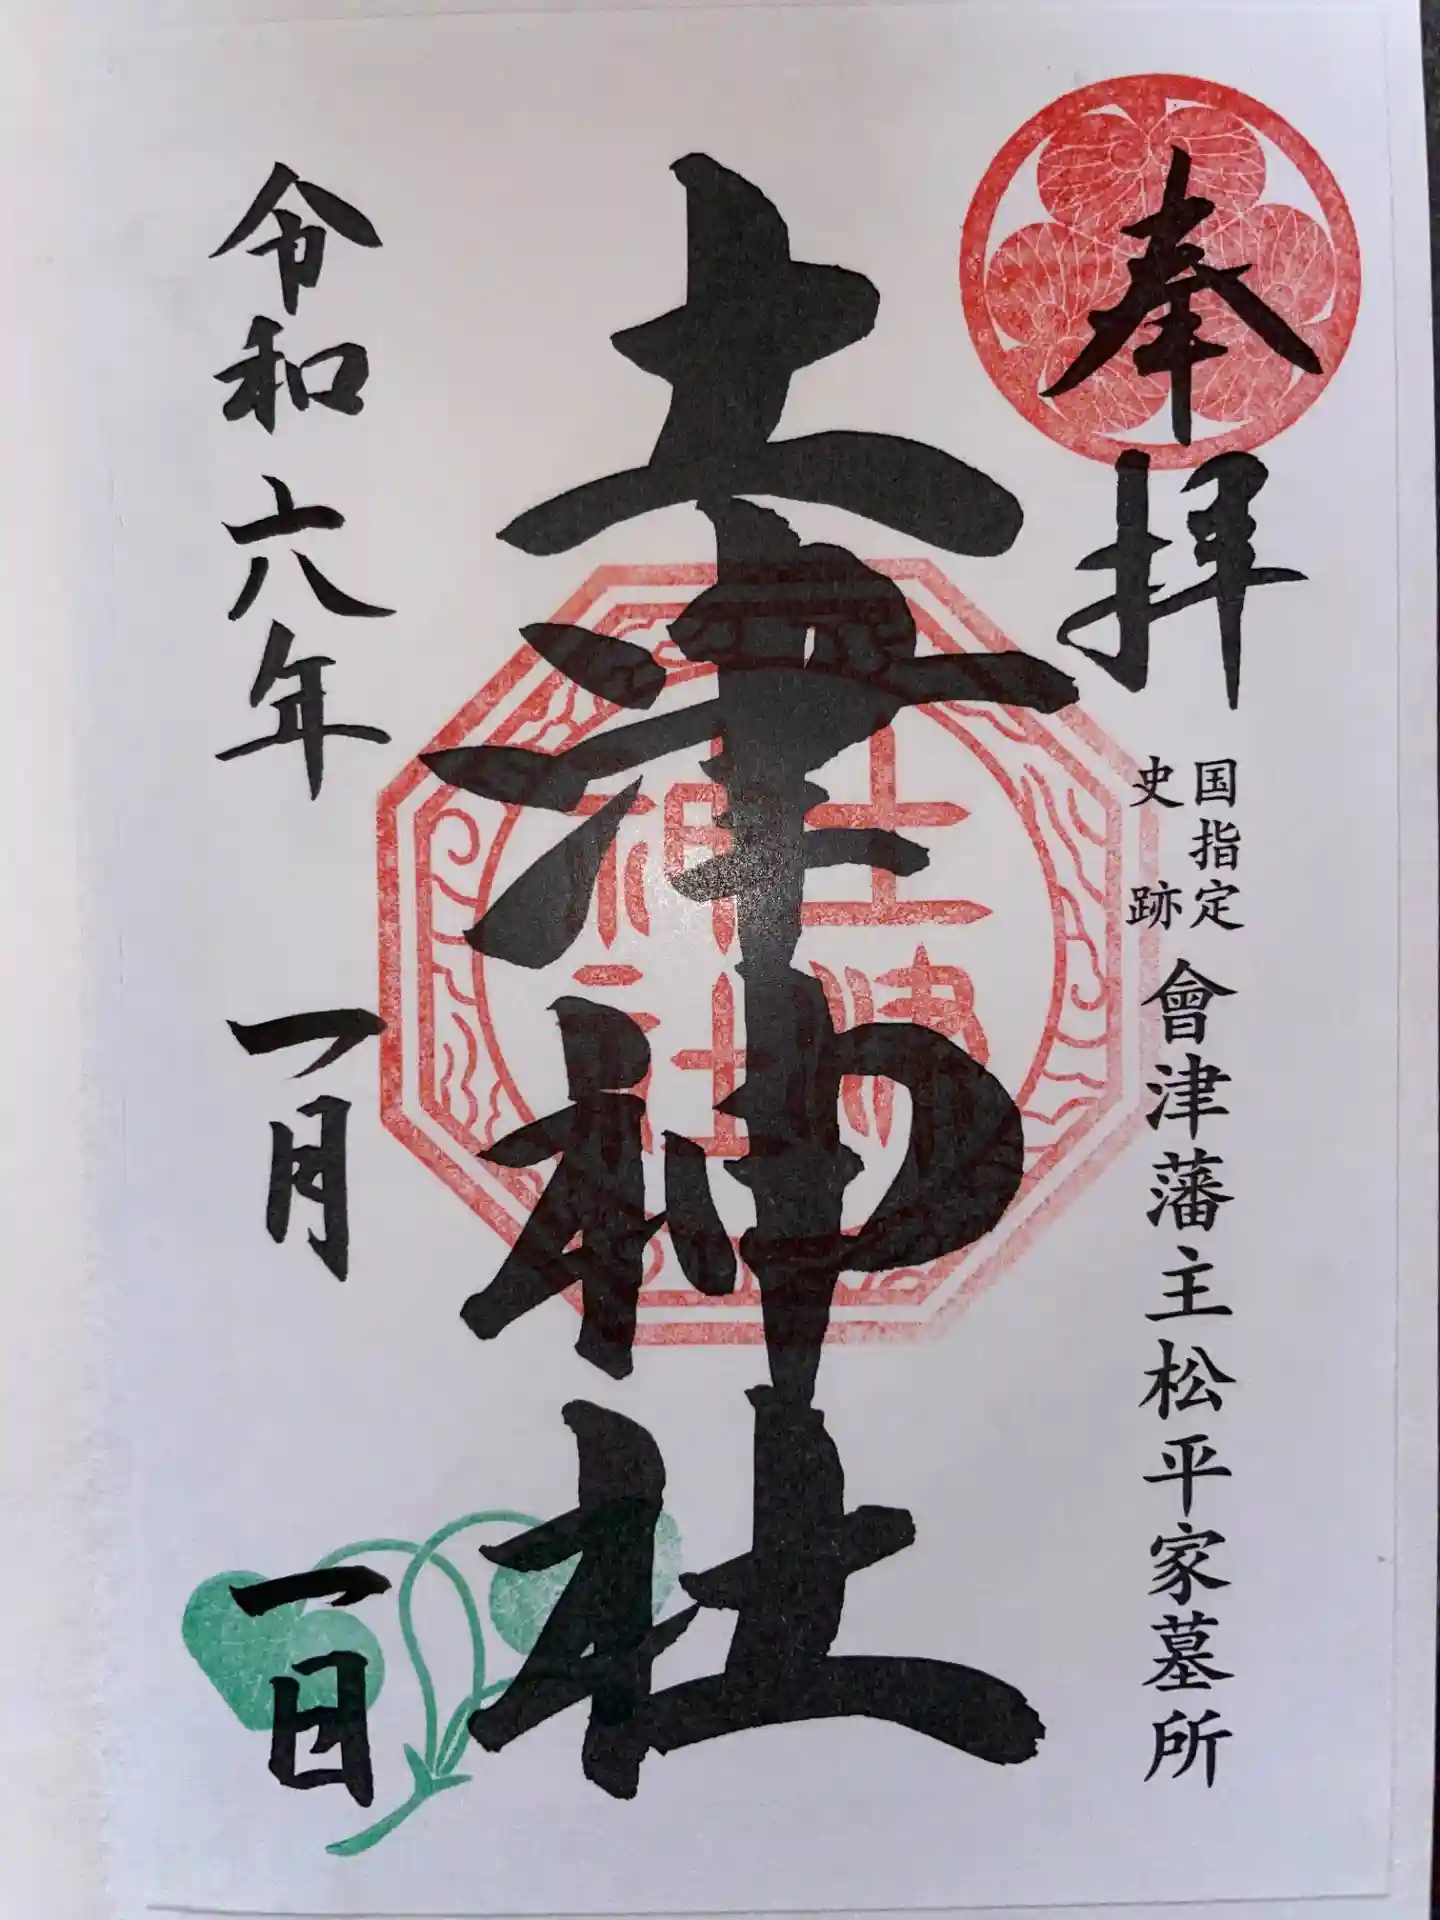 奉拝
国指定
史跡
會津藩主松平家墓所
土津神社
土津
神社
令和六年 一月 一日